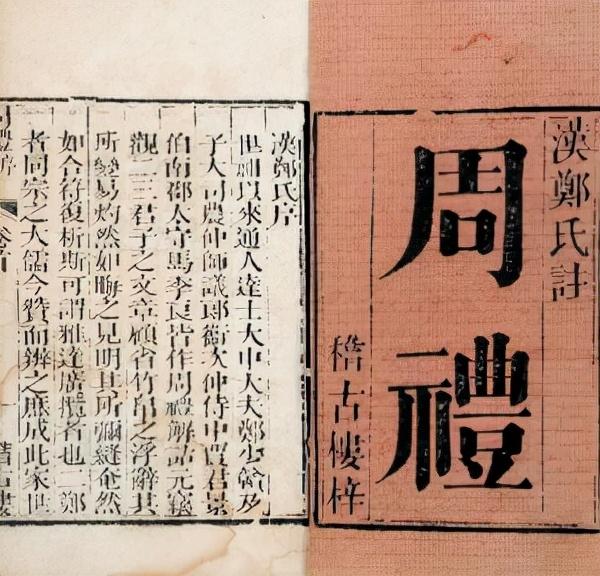 漢鄭氏註
周禮
稽古樓梓
漢鄭氏序
世祖以來通人達士大中大夫鄭少贛及
子大司農仲師議郎衛次仲侍中賈君景
伯南郡太守馬季長皆作周禮解詁元竊
觀二三君子之文章顧省竹帛之浮辭其
所變易灼然如晦之見明其所彌縫奄然
如合符復析斯可謂雅達廣攬者也二鄭
者同宗之大儒今贊而辨之庶成此家世
序 卷首